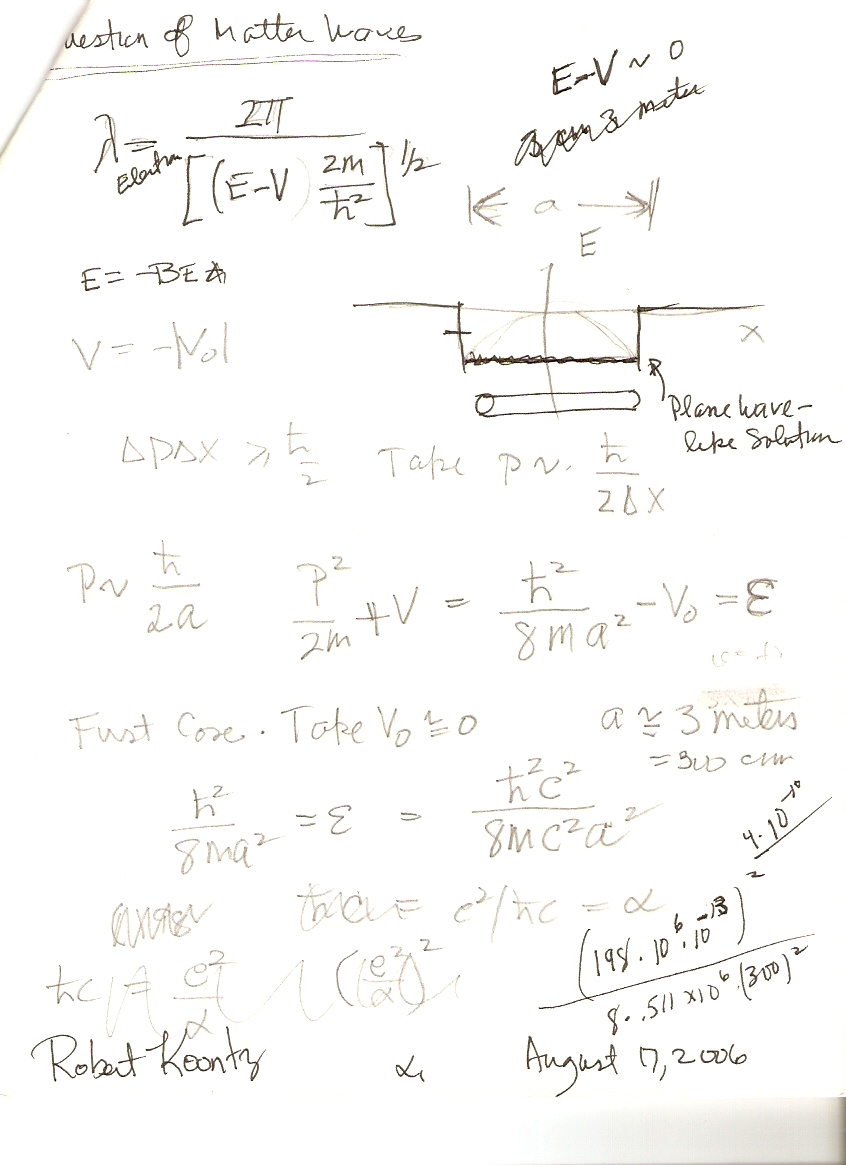 uestion of Matter Waves
E-V ~ 0
3 meter
λ = 2π / [(E-V) 2m/ħ²]^1/2
Electron
a
E
E = -BEA
V = -|V₀|
x
Plane wave-
like Solution
ΔPΔX ≥ ħ/2 Take P ~ ħ/2ΔX
P ~ ħ/2a P²/2m + V = ħ²/8ma² - V₀ = ε
First Case. Take V₀ ≅ 0 a ≅ 3 meters
= 300 cm
ħ²/8ma² = ε = ħ²c²/8mc²a²
4·10⁻¹⁰
e²/ħc = α
(198·10⁶·10⁻¹³)² / 8·.511x10⁶·(300)²
ħc = e²/α (e²/α)²
Robert Koontz α August 17, 2006